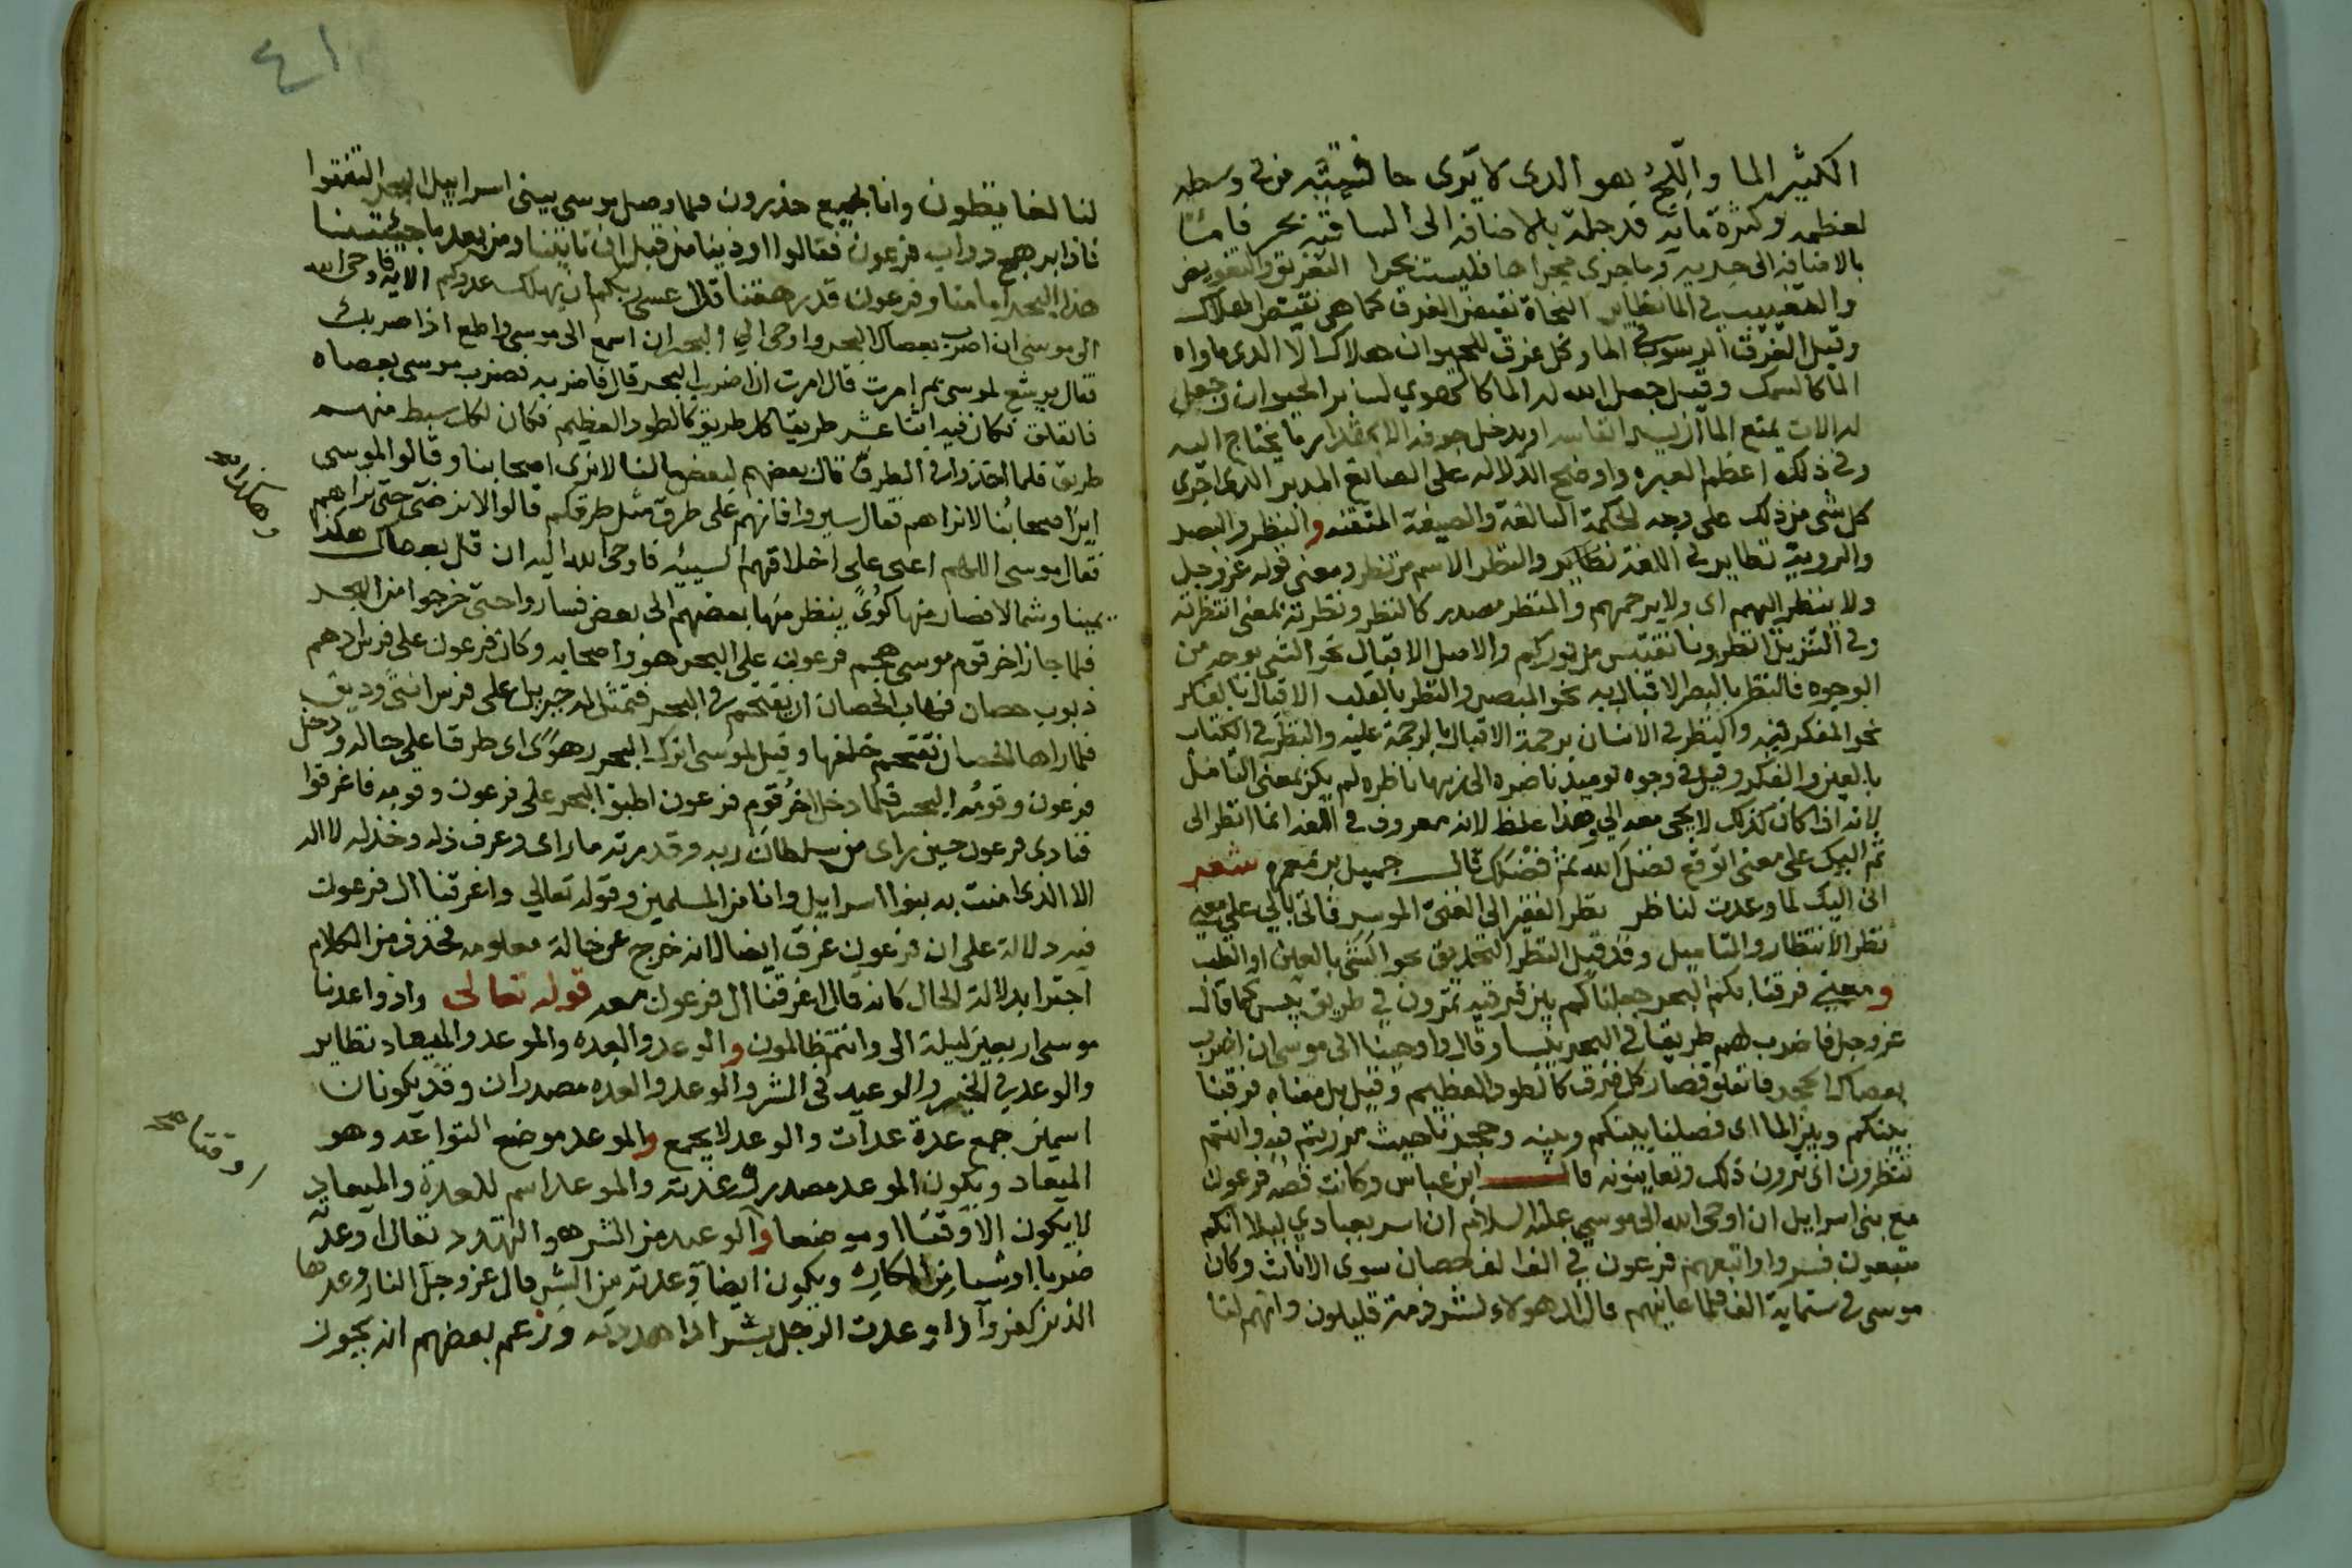 الكثير الما واللج هو الدى لا يرى حافتيه من فى وسطه
لعظمه وكثرة مائه فدجلة بالاضافه الى الساقيه بحر فاما
بالاضافه الى جده وما جرى مجراها فليست بحرا التغريق والتغويص
والتغييب فى الما نظاير النجاة نقيض الغرق كما هى نقيض الهلاك
وقيل الغرق الرسوب فى الما وكل غرق للحيوان هلاك الا الدى ماواه
الما كالسمك وقيل جعل الله له الما كالهوي لساير الحيوان وجعل
له الات يمنع الما ان يسد انفاسه او يدخل جوفه الا بمقدار ما يحتاج اليه
وفى ذلك اعظم العبره واوضح الدلاله على الصانع المدبر الدى اجرى
كل شى من ذلك على وجه الحكمة البالغة والصيغة المتقنه والنظر والبصر
والروية نظاير فى اللغة نظاير والنظر الاسم من نظر ومعنى قوله عز وجل
ولا ينظر اليهم اى ولا يرحمهم والمنظر مصدر كالنظر ونظرته بمعنى انتظرته
وفى التنزيل انظرونا نقتبس من نوركم والاصل الاقبال نحو الشى بوجه من
الوجوه فالنظر بالبصر الاقبال به نحو المبصر والنظر بالقلب الاقبال بالفكر
نحو المفكر فيه والنظر فى الانسان برحمة الاقبال بالرحمة عليه والنظر فى الكتاب
بالعين والفكر وقيل فى وجوه يوميذ ناضره الى ربها ناظره لم يكن بمعنى التامل
لانه اذا كان كذلك لا يجى معه الي وهذا غلط لانه معروف فى اللغه انما انظر الى
ثم اليك على معنى اتوقع فضل الله ثم فضلك قال جميل بن معمر شعر
انى اليك لما وعدت لناظر نظر الفقير الى الغنى الموسر فاتى بالي على معنى
نظر الانتظار والتاميل وقد قيل النظر التحديق نحو الشى بالعين او القلب
ومعنى فرقنا بكم البحر جعلناكم بين فرقيه تمرون فى طريق يبس كما قال
عز وجل فاضرب لهم طريقا فى البحر يبسا وقال واوحينا الى موسى ان اضرب
بعصاك البحر فانفلق فصار كل فرق كالطود العظيم وقيل بل معناه فرقنا
بينكم وبين الما اى فصلنا بينكم وبينه وحجزنا حيث مررتم فيه وانتم
تنظرون اى ترون ذلك وتعاينونه قال ابن عباس وكانت قصه فرعون
مع بنى اسرايل ان اوحى الله الى موسى عليه السلام ان اسر بعبادي ليلا انكم
متبعون فسروا واتبعهم فرعون فى الف الف حصان سوى الاناث وكان
موسى فى ستماية الف فلما عاينهم قال ان هولاء لشرذمة قليلون وانهم لنا
٤١
لنا لغايظون وانا لجميع حذرون فلما وصل موسى ببنى اسراييل البحر التفتوا
فاذا برهج دواب فرعون فقالوا اوذينا من قبل ان تاتينا ومن بعد ما جيتنا
هذا البحر امامنا وفرعون قد رهقنا قال عسى ربكم ان يهلك عدوكم الايه فاوحى الله
الى موسى ان اضرب بعصاك البحر واوحى الي البحر ان اسمع الى موسى واطع اذا ضربك
فقال يوشع لموسى بم امرت قال امرت ان اضرب البحر قال فاضربه فضرب موسى بعصاه
فانفلق فكان فيه اثنا عشر طريقا كل طريق كالطود العظيم فكان لكل سبط منهم
طريق فلما اخذوا فى الطرق قال بعضهم لبعض ما لنا لا نرى اصحابنا وقالوا لموسى
اين اصحابنا لا نراهم فقال سيروا فانهم على طرق مثل طرقكم قالوا لا نرضى حتى نراهم
فقال موسى اللهم اعنى على اخلاقهم السييه فاوحى الله اليه ان قل بعصاك هكذا
وهكذا صح
يمينا وشمالا فصار منها كوى ينظر منها بعضهم الى بعض فساروا حتى خرجوا من البحر
فلما جاز اخر قوم موسى هجم فرعون على البحر هو واصحابه وكان فرعون على فرس ادهم
ذنوب حصان فهاب الحصان ان يقتحم فى البحر فتمثل له جبريل على فرس انثى وديق
فلما راها الحصان تقحم خلفها وقيل لموسى اترك البحر رهوا اى طرقا على حاله ودخل
فرعون وقومه البحر فلما دخل اخر قوم فرعون اطبق البحر على فرعون وقومه فاغرقوا
فنادى فرعون حين راى من سلطان ربه وقدرته ما راى وعرف ذله وخذله لا اله
الا الدى امنت به بنوا اسراييل وانا من المسلمين وقوله تعالى واغرقنا ال فرعون
فيه دلالة على ان فرعون غرق ايضا لانه خرج عن حالة معلومه فحذف من الكلام
اجتزا بدلالة الحال كانه قال اغرقنا ال فرعون معه قوله تعالى واذ واعدنا
موسى اربعين ليلة الى وانتم ظالمون والوعد والعده والموعد والميعاد نظاير
والوعد فى الخير والوعيد فى الشر والوعد والعده مصدران وقد يكونان
اسمين جمع عدة عدات والوعد لا يجمع والموعد موضع التواعد وهو
الميعاد ويكون الموعد مصدر وعدته والموعد اسم للعدة والميعاد
لا يكون الا وقتا او موضعا والوعيد من الشر هو التهدد تقال اوعده
او وقتا صح
ضربا او شيا من المكاره ويكون ايضا وعدته من الشر قال عز وجل النار وعدها
الذين كفروا اذا وعدت الرجل بشر اذا هددته وزعم بعضهم انه يجوز